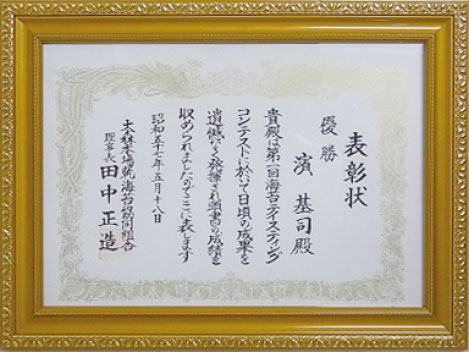 表彰状
優勝
濱基司殿
貴殿は第一回海苔テイスティング
コンテストに於いて日頃の成果を
遺憾なく発揮され頭書の成績を
収められましたのでここに表します
昭和五十七年五月十八日
大森本場乾海苔協同組合
理事長 田中正造